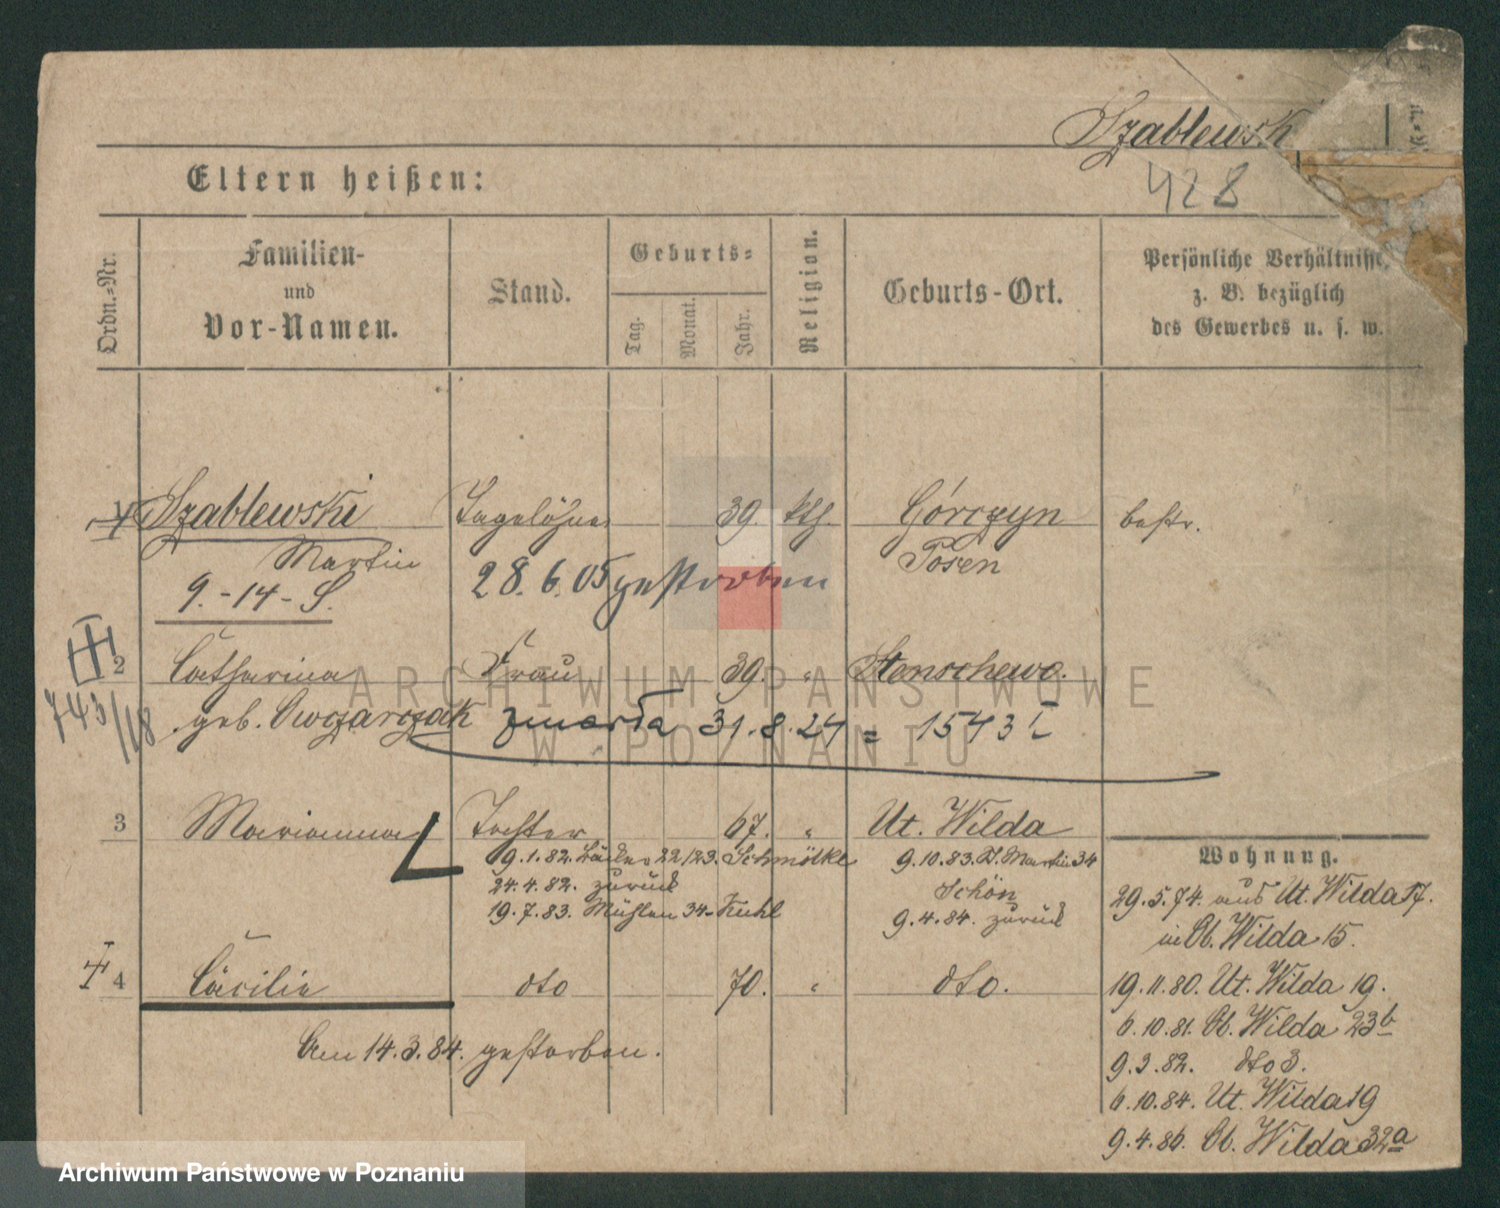 Szablewski
428
Eltern heißen:
Ordn.=Nr.
Familien-
und
Vor-Namen.
Stand.
Geburts=
Tag.
Monat.
Jahr.
Religion.
Geburts-Ort.
Persönliche Verhältnisse
z. B. bezüglich
des Gewerbes u. s. w.
1 Szablewski Tagelöhner 39. kth. Górczyn bestr.
Martin Posen
9.-14-S. 28.6.05 gestorben
2 Catharina Frau 39. " Stenschewo.
geb. Owczarczak zmarła 31.8.24 = 1543 I
743/18
3 Marianna Tochter 67. " Ut. Wilda
9.1.82. Bäcker 22/23. Schmölke
24.4.82. zurück
19.7.83. Mühlen 34- Kuhl
9.10.83. St. Martin 34
Schön
9.4.84. zurück
4 Cäcilie dto 70. " dto.
Am 14.3.84. gestorben.
Wohnung.
29.5.74. aus Ut. Wilda 17.
in Ob. Wilda 15.
19.11.80. Ut. Wilda 19.
6.10.81. Ob. Wilda 23b
9.3.82. dto 3.
6.10.84. Ut. Wilda 19
9.4.86. Ob. Wilda 32a
ARCHIWUM PAŃSTWOWE
W POZNANIU
Archiwum Państwowe w Poznaniu